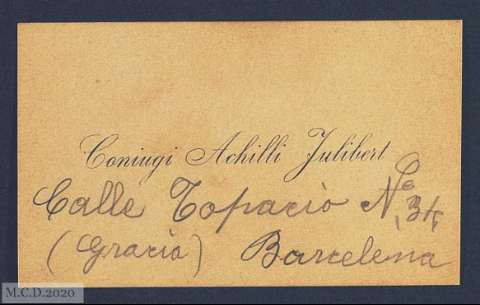 Coniugi Achilli Julibert
Calle Topacio Nº 34,
(Gracia) Barcelena
M.C.D.2020